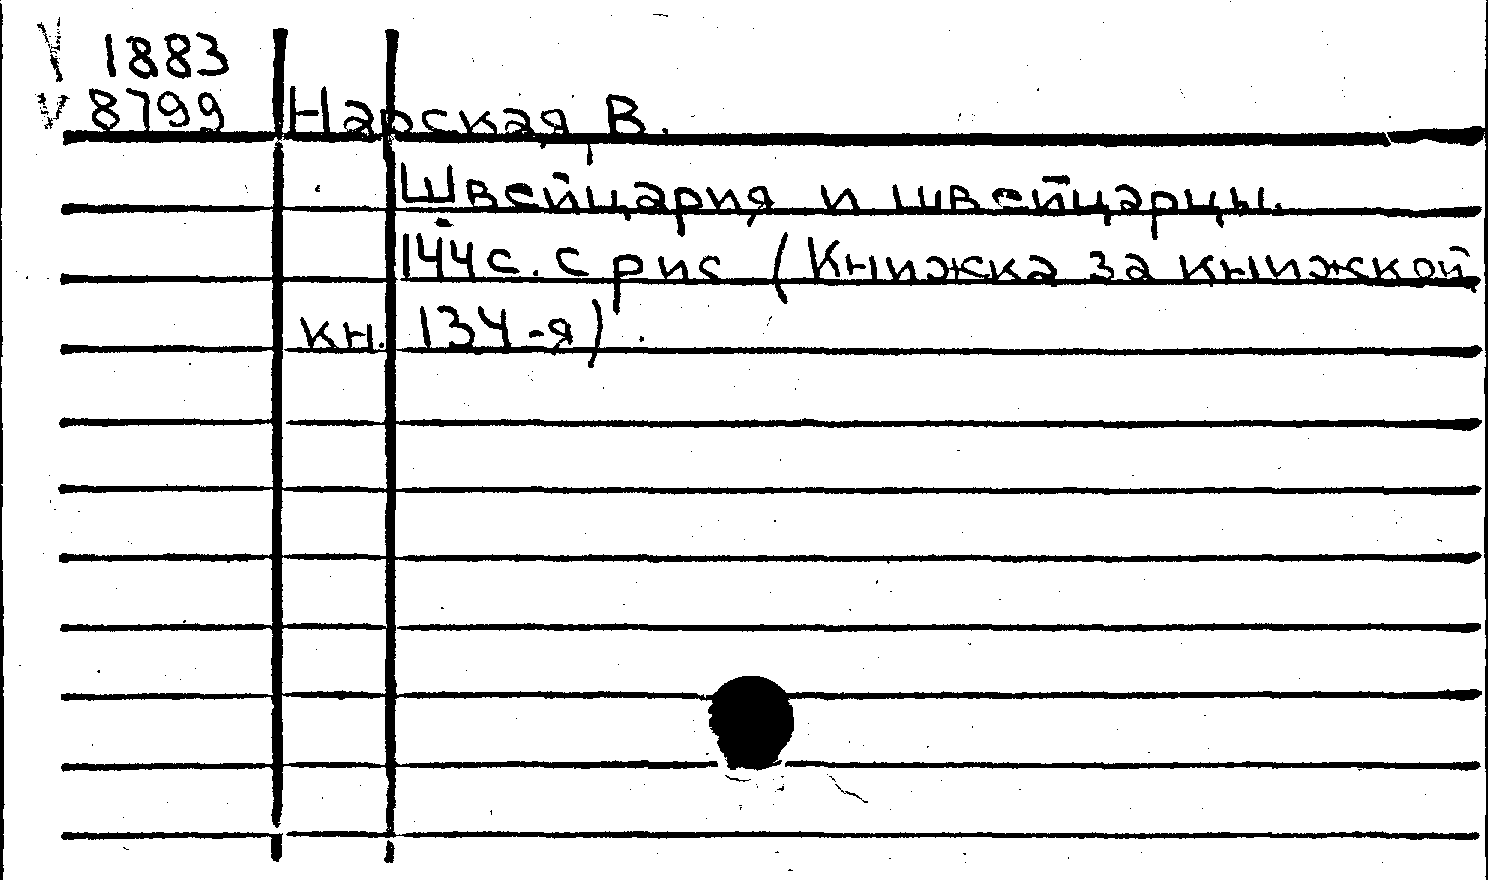 V 1883
V 8799 Нарская, В.
Швейцария и швейцарцы.
144 с. с рис (Книжка за книжкой
кн. 134-я).